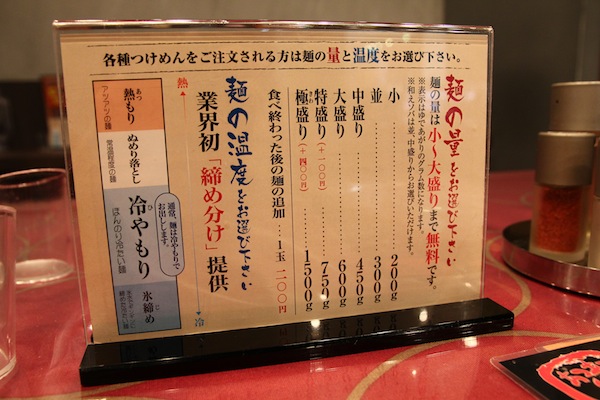 各種つけめんをご注文される方は麺の量と温度をお選び下さい。
麺の量をお選び下さい
麺の量は小〜大盛りまで無料です。
※表示はゆであがりのグラム数になります。
※和えソバは並、中盛りからお選びいただけます。
小 200g
並 300g
中盛り 450g
大盛り 600g
特盛り(+一〇〇円) 750g
極盛り(+四〇〇円) 1500g
食べ終わった後の麺の追加 1玉 二〇〇円
麺の温度をお選び下さい
業界初「締め分け」提供
熱
冷
通常、麺は冷やもりで
お出しします。
熱もり
アツアツの麺
ぬめり落とし
常温程度の麺
冷やもり
ほんのり冷たい麺
氷締め